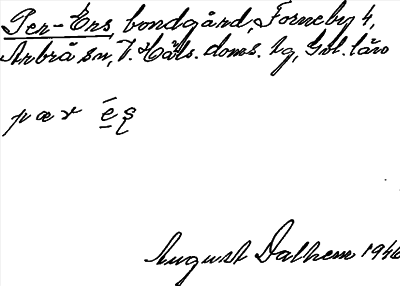 Per-Ers, bondgård, Forneby 4,
Arbrå sn, V. Häls. doms. hg, Gvl. län
pær ēs
August Dalhem 1946